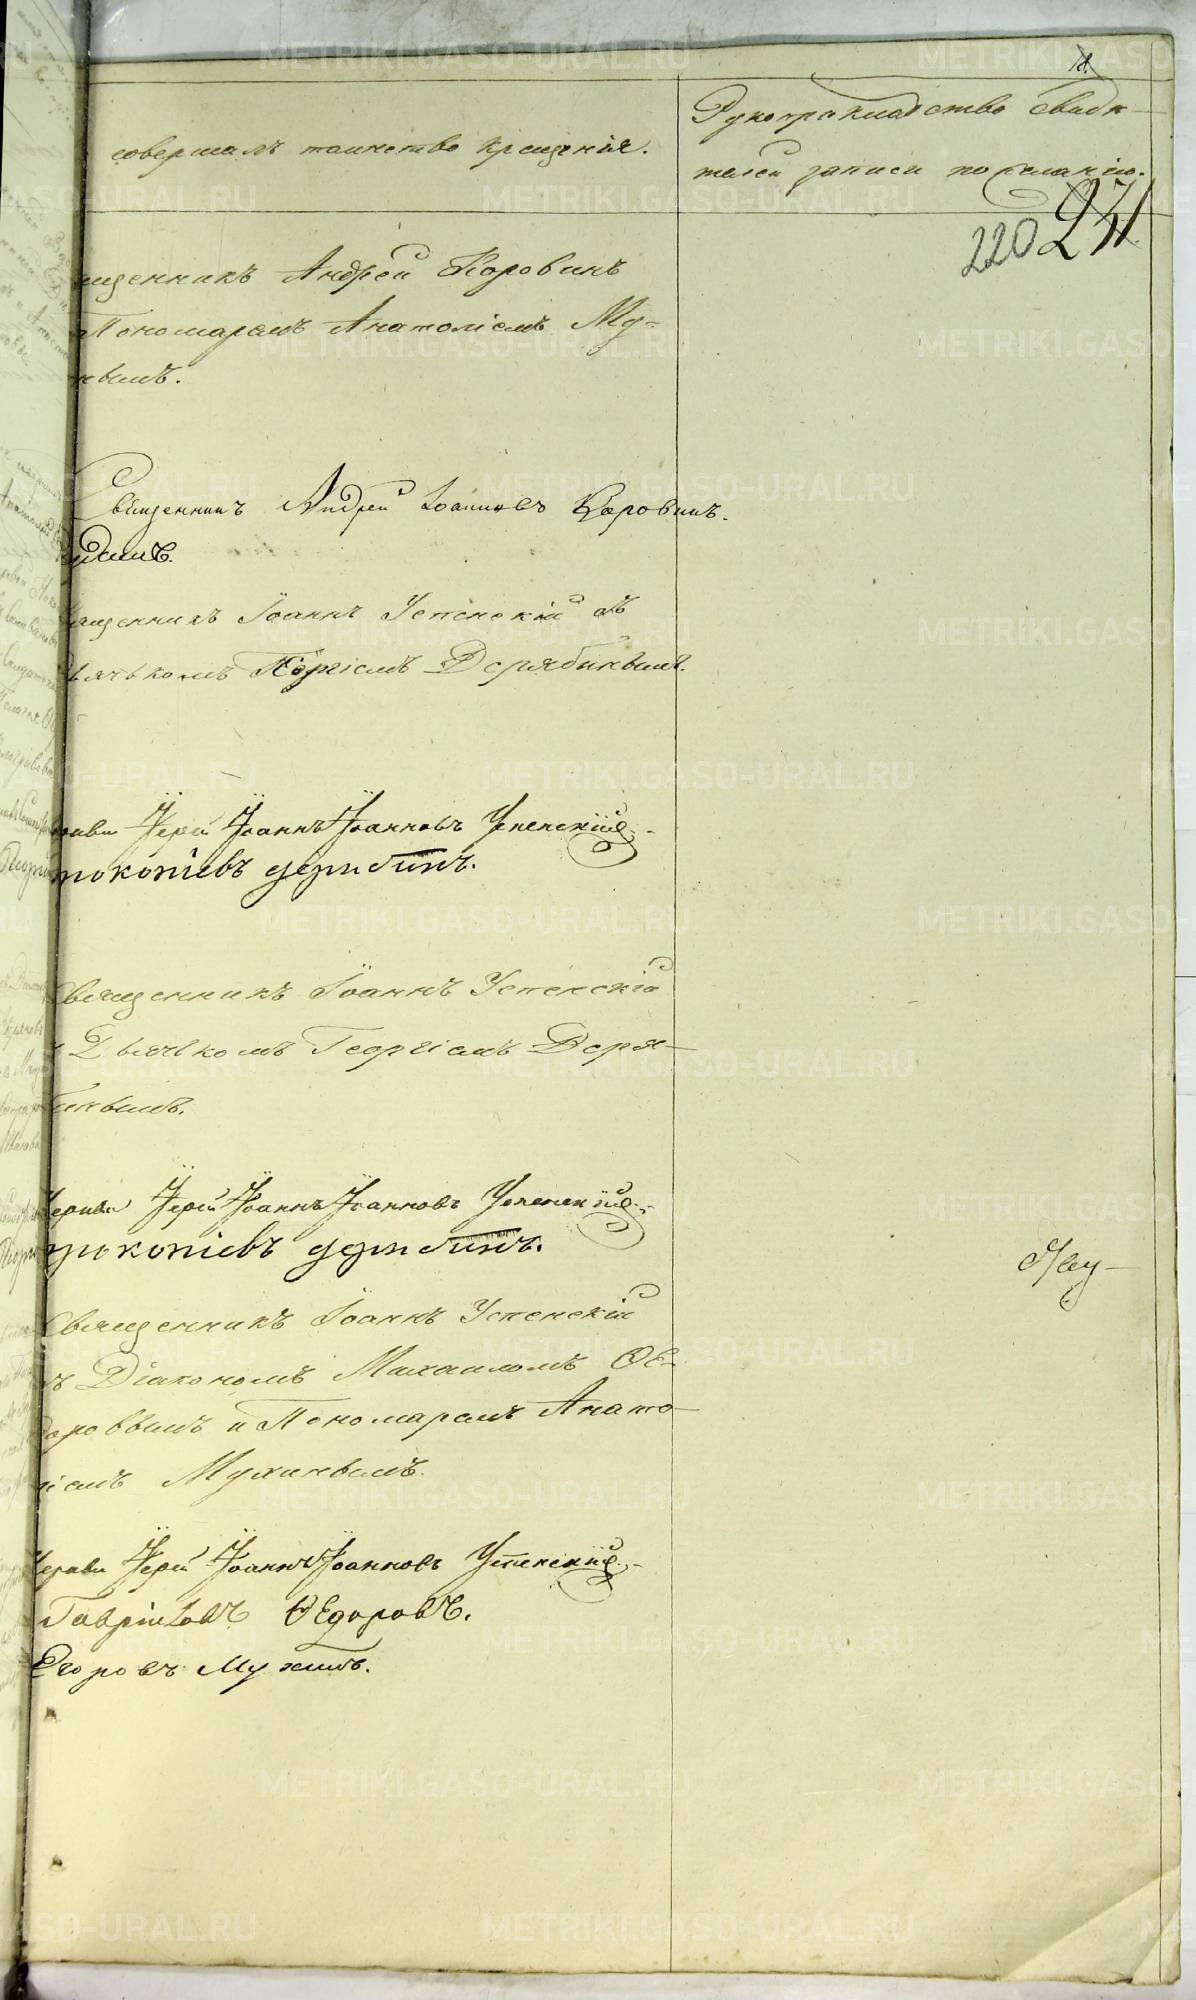 совершалъ таинство крещенія.
Рукоприкладство свидѣ-
телей записи по желанію.
220 2
щенникъ Андрей Коровинъ
Пономаремъ Анатоліемъ Му-
нымъ.
Священникъ Андрей Іоанновъ Коровинъ.
щенникъ Іоаннъ Успенскій съ
ьячькомъ Георгіемъ Дерябинымъ.
Іерей Іоаннъ Іоанновъ Успенскій.
рокопіевъ дерябинъ.
Священникъ Іоаннъ Успенскій
Дьячькомъ Георгіемъ Деря-
бинымъ.
Іерей Іоаннъ Іоанновъ Успенскій.
рокопіевъ дерябинъ.
Священникъ Іоаннъ Успенскій
съ Діакономъ Михаиломъ Ѳе-
доровымъ и Пономаремъ Анато-
ліемъ Мухинымъ.
Іерей Іоаннъ Іоанновъ Успенскій.
Гавріиловъ Ѳедоровъ.
Егоровъ Мухинъ.
METRIKI.GASO-URAL.RU